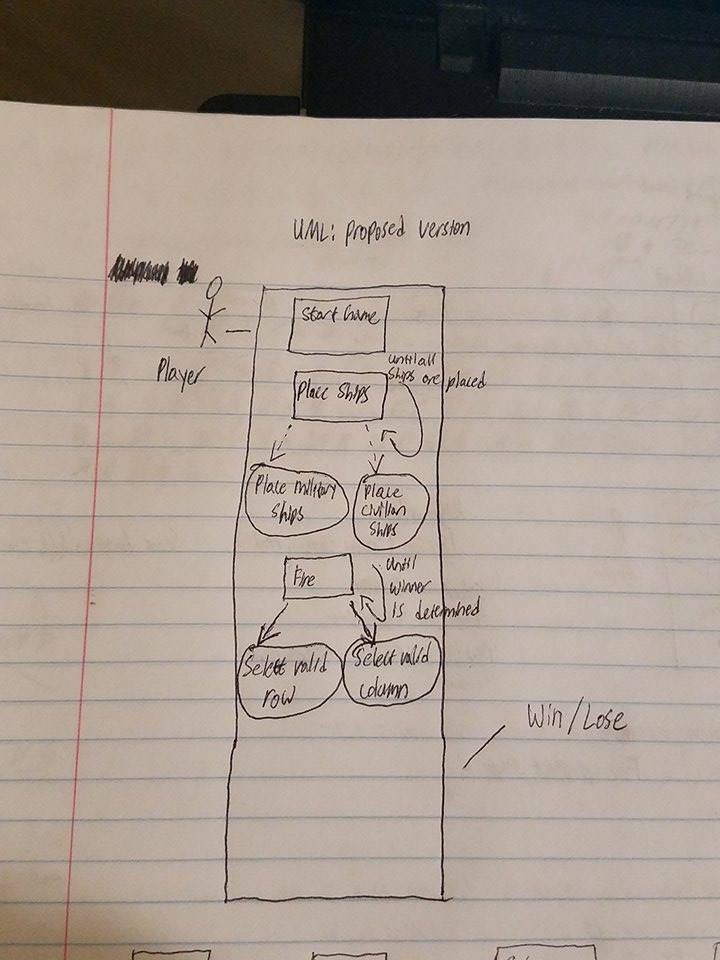 UML: Proposed Version
Start Game
Player
until all
ships are placed
Place Ships
Place military
ships
Place
civilian
ships
Fire
until
winner
is determined
Select valid
row
Select valid
column
Win/Lose